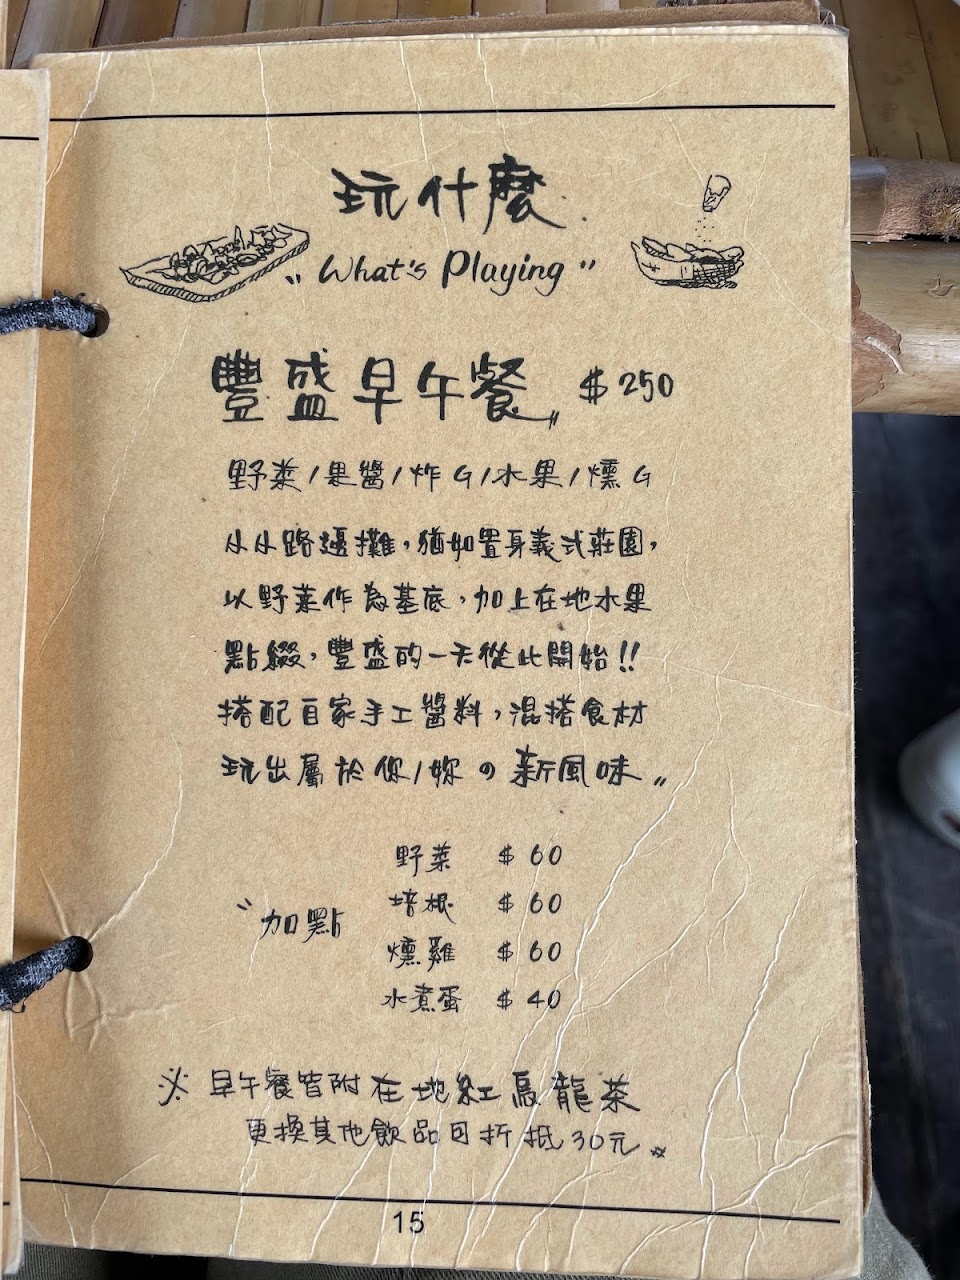 玩什麼
"What's Playing"
豐盛早午餐〃 $250
野菜/果醬/炸G/水果/燻G
小小路邊攤,猶如置身義式莊園,
以野菜作為基底,加上在地水果
點綴,豐盛的一天從此開始!!
搭配自家手工醬料,混搭食材
玩出屬於你/妳の新風味〃
〃加點
野菜 $60
培根 $60
燻雞 $60
水煮蛋 $40
※ 早午餐皆附在地紅烏龍茶
更換其他飲品可折抵30元〃
15